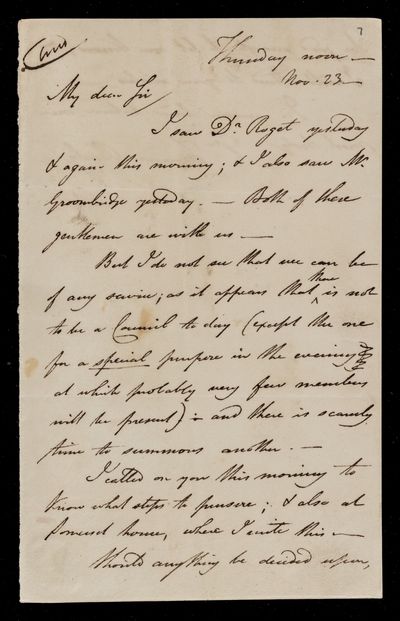 7
Thursday noon —
Nov. 23 —
My dear Sir
I saw Dr. Roget yesterday
& again this morning; & I also saw Mr.
Groombridge yesterday. — Both of these
gentlemen are with us —
But I do not see that we can be
of any service; as it appears that there is not
to be a Council to day (except the one
for a special purpose in the evening
at which probably very few members
will be present) — and there is scarcely
time to summons another. —
I called on you this morning to
know what steps to pursue; & also at
Somerset house, where I write this —
Should anything be decided upon,